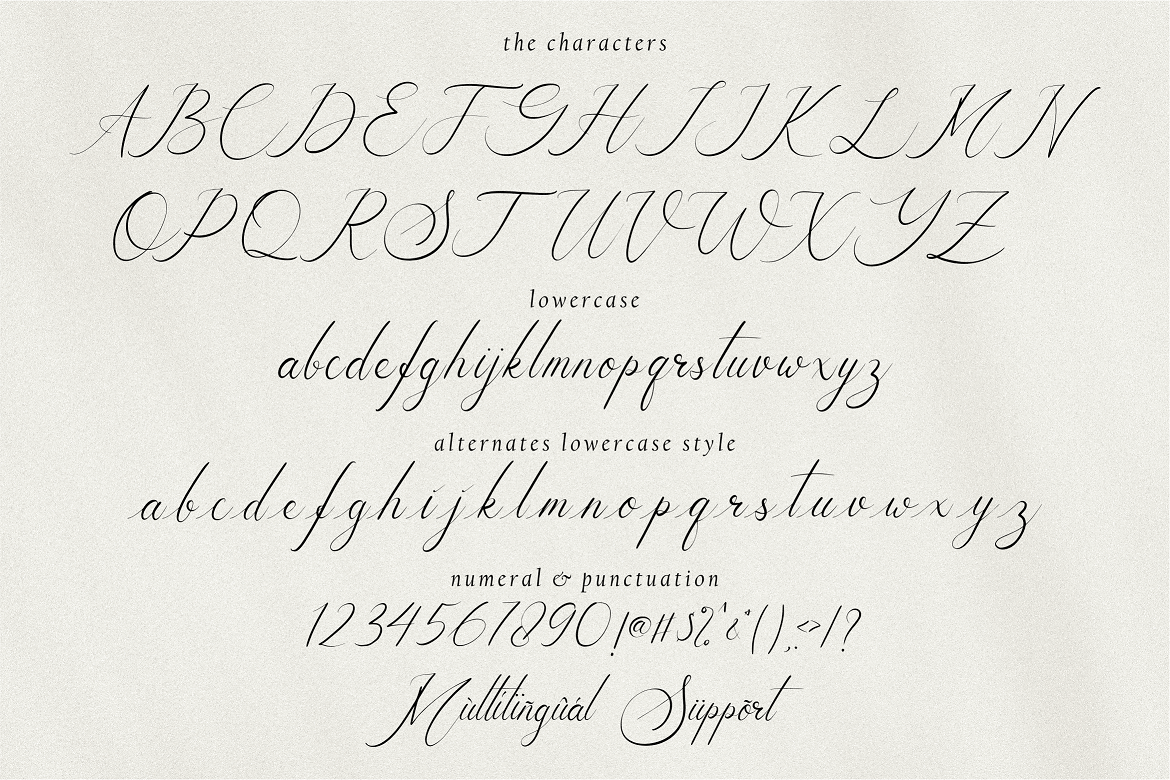 the characters
ABCDEFGHIJKLMN
OPQRSTUVWXYZ
lowercase
abcdefghijklmnopqrstuvwxyz
alternates lowercase style
abcdefghijklmnopqrstuvwxyz
numeral & punctuation
1234567890!@#$%^&*(),.<>/?
Mùltîlíñgûál Süppõrt